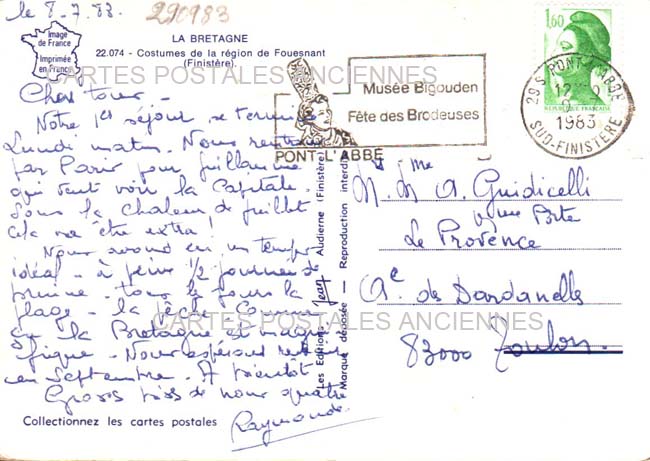 le 8.7.83.
290983
Image
de France
Imprimée
en France
LA BRETAGNE
22.074 - Costumes de la région de Fouesnant
(Finistère).
CARTES POSTALES ANCIENNES
Chers tous -
Notre 1er séjour se termine
Lundi matin. Nous rentrons
par Paris pour Guillaume
qui veut voir la Capitale.
Sous la chaleur de juillet
cela va être extra!
Nous avons eu un temps
idéal - à peine 1/2 journée de
pluie - tous les jours la
plage - la pêche -
la Bretagne est magni
fique - Nous espérons revenir
en Septembre. A bientôt
Gross biss de nous quatre
Raymonde
Collectionnez les cartes postales
Musée Bigouden
Fête des Brodeuses
PONT-L'ABBE
1,60
REPUBLIQUE FRANÇAISE
29 S PONT-L'ABBE
12 H
1983
SUD-FINISTERE
Les Editions Jean Audierne (Finistère)
Marque déposée - Reproduction interdite
M. Mme A. Guidicelli
Le Provence
Ae des Dardanelles
CARTES POSTALES ANCIENNES
83000 Toulon.